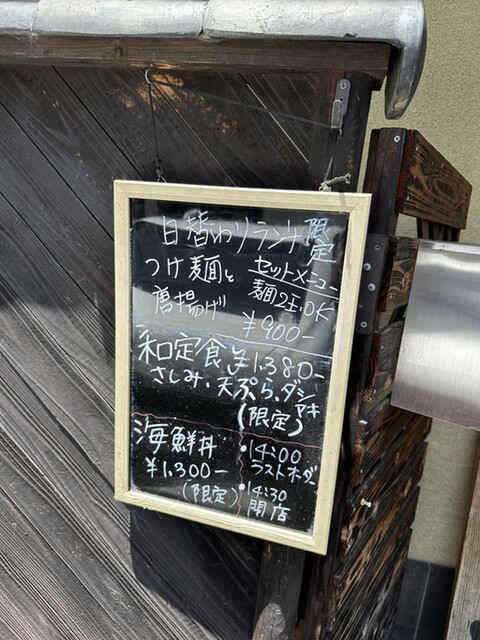 日替わりランチ 限定
つけ麺と
唐揚げ
セットメニュー
麺2玉OK
¥900-
和定食 ¥1,380-
さしみ・天ぷら・ダシ
アキ
(限定)
海鮮丼
¥1,300-
(限定)
・14:00
ラストオーダー
・14:30
閉店